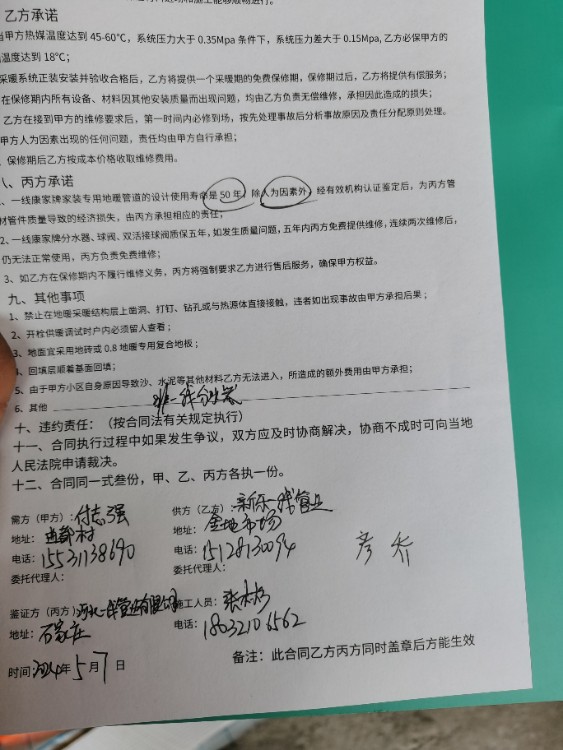 乙方承诺
当甲方热媒温度达到45-60℃，系统压力大于0.35Mpa条件下，系统压力差大于0.15Mpa,乙方必保甲方的
温度达到18℃；
采暖系统正装安装并验收合格后，乙方将提供一个采暖期的免费保修期，保修期过后，乙方将提供有偿服务；
在保修期内所有设备、材料因其他安装质量而出现问题，均由乙方负责无偿维修，承担因此造成的损失；
乙方在接到甲方的维修要求后，第一时间内必修到场，按先处理事故后分析事故原因及责任分配原则处理。
甲方人为因素出现的任何问题，责任均由甲方自行承担；
保修期后乙方按成本价格收取维修费用。
八、丙方承诺
1、一线康家牌家装专用地暖管道的设计使用寿命是50年，除人为因素外，经有效机构认证鉴定后，为丙方管
材管件质量导致的经济损失，由丙方承担相应的责任；
2、一线康家牌分水器、球阀、双活接球阀质保五年，如发生质量问题，五年内丙方免费提供维修，连续两次维修后，
仍无法正常使用，丙方负责免费维修；
3、如乙方在保修期内不履行维修义务，丙方将强制要求乙方进行售后服务，确保甲方权益。
九、其他事项
1、禁止在地暖采暖结构层上凿洞、打钉、钻孔或与热源体直接接触，违者如出现事故由甲方承担后果；
2、开栓供暖调试时户内必须留人查看；
3、地面宜采用地砖或0.8地暖专用复合地板；
4、回填层顺着基面回填；
5、由于甲方小区自身原因导致沙、水泥等其他材料乙方无法进入，所造成的额外费用由甲方承担；
6、其他 一线分水器
十、违约责任：（按合同法有关规定执行）
十一、合同执行过程中如果发生争议，双方应及时协商解决，协商不成时可向当地
人民法院申请裁决。
十二、合同同一式叁份，甲、乙、丙方各执一份。
需方（甲方）：付志强
地址： 村
电话：15531138690
委托代理人：
供方（乙方）：新乐一线管业
地址：金地市场
电话：15128130094
委托代理人：
鉴证方（丙方）河北一线管业有限公司
地址：石家庄
时间：2024年5月7日
施工人员：张
电话：18032106562
备注：此合同乙方丙方同时盖章后方能生效